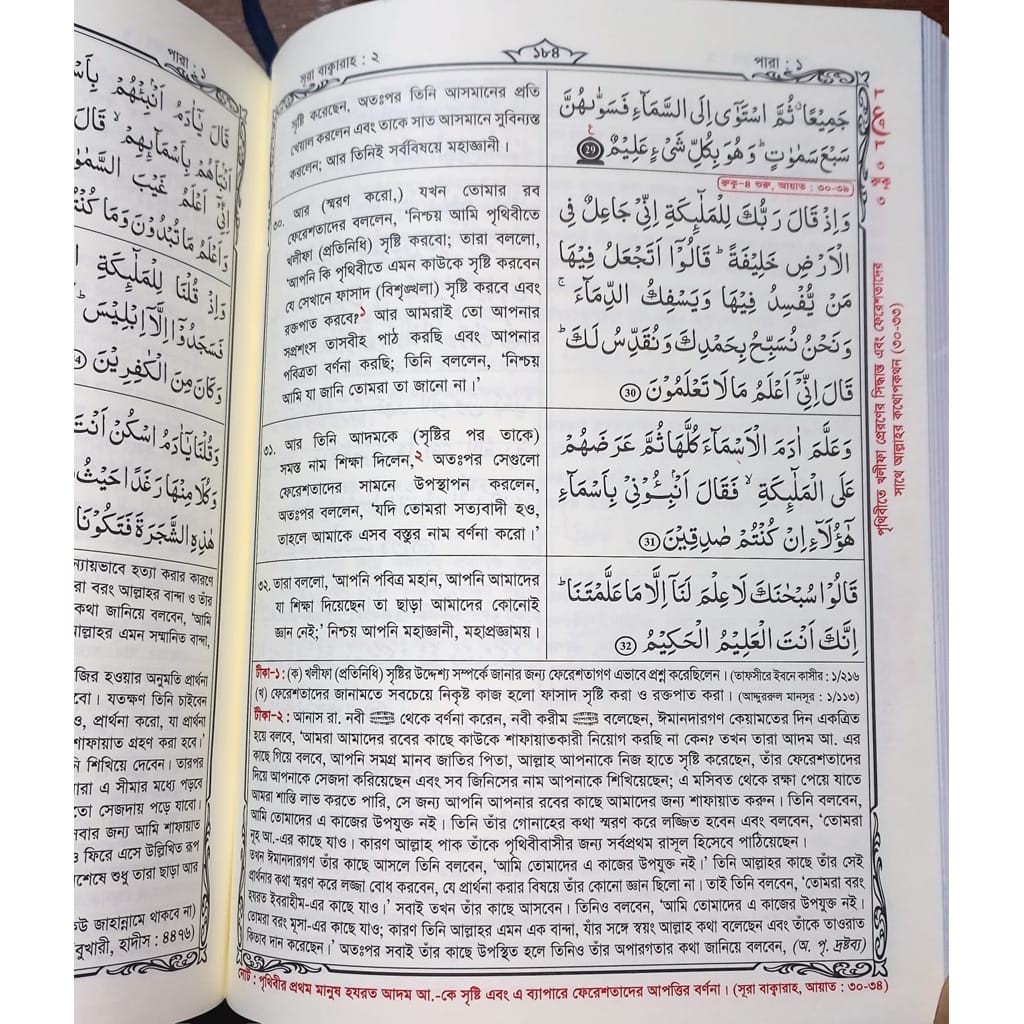 সূরা বাক্বারাহ : ২
১৮৪
পারা : ১
সৃষ্টি করেছেন, অতঃপর তিনি আসমানের প্রতি
খেয়াল করলেন এবং তাকে সাত আসমানে সুবিন্যস্ত
করলেন; আর তিনিই সর্ববিষয়ে মহাজ্ঞানী।
جَمِيْعًا ۗ ثُمَّ اسْتَوٰٓى اِلَى السَّمَآءِ فَسَوّٰىهُنَّ
سَبْعَ سَمٰوٰتٍ ؕ وَهُوَ بِكُلِّ شَىْءٍ عَلِيْمٌ 29
রুকু-৪ শুরু, আয়াত : ৩০-৩৯
৩০. আর (স্মরণ করো,) যখন তোমার রব
ফেরেশতাদের বললেন, ‘নিশ্চয় আমি পৃথিবীতে
খলীফা (প্রতিনিধি) সৃষ্টি করবো; তারা বললো,
‘আপনি কি পৃথিবীতে এমন কাউকে সৃষ্টি করবেন
যে সেখানে ফাসাদ (বিশৃঙ্খলা) সৃষ্টি করবে এবং
রক্তপাত করবে?১ আর আমরাই তো আপনার
সপ্রশংস তাসবীহ পাঠ করছি এবং আপনার
পবিত্রতা বর্ণনা করছি; তিনি বললেন, ‘নিশ্চয়
আমি যা জানি তোমরা তা জানো না।’
وَاِذْ قَالَ رَبُّكَ لِلْمَلٰٓئِكَةِ اِنِّىْ جَاعِلٌ فِى
الْاَرْضِ خَلِيْفَةً ؕ قَالُوْٓا اَتَجْعَلُ فِيْهَا
مَنْ يُّفْسِدُ فِيْهَا وَيَسْفِكُ الدِّمَآءَ ۚ
وَنَحْنُ نُسَبِّحُ بِحَمْدِكَ وَنُقَدِّسُ لَكَ ؕ
قَالَ اِنِّىْٓ اَعْلَمُ مَالَا تَعْلَمُوْنَ 30
৩১. আর তিনি আদমকে (সৃষ্টির পর তাকে)
সমস্ত নাম শিক্ষা দিলেন,২ অতঃপর সেগুলো
ফেরেশতাদের সামনে উপস্থাপন করলেন,
অতঃপর বললেন, ‘যদি তোমরা সত্যবাদী হও,
তাহলে আমাকে এসব বস্তুর নাম বর্ণনা করো।’
وَعَلَّمَ اٰدَمَ الْاَسْمَآءَ كُلَّهَا ثُمَّ عَرَضَهُمْ
عَلَى الْمَلٰٓئِكَةِ ۙ فَقَالَ اَنْۢبِـُٔوْنِىْ بِاَسْمَآءِ
هٰٓؤُلَآءِ اِنْ كُنْتُمْ صٰدِقِيْنَ 31
৩২. তারা বললো, ‘আপনি পবিত্র মহান, আপনি আমাদের
যা শিক্ষা দিয়েছেন তা ছাড়া আমাদের কোনোই
জ্ঞান নেই;’ নিশ্চয় আপনি মহাজ্ঞানী, মহাপ্রজ্ঞাময়।
قَالُوْا سُبْحٰنَكَ لَا عِلْمَ لَنَآ اِلَّا مَا عَلَّمْتَنَا ؕ
اِنَّكَ اَنْتَ الْعَلِيْمُ الْحَكِيْمُ 32
টীকা-১ : (ক) খলীফা (প্রতিনিধি) সৃষ্টির উদ্দেশ্য সম্পর্কে জানার জন্য ফেরেশতাগণ এভাবে প্রশ্ন করেছিলেন। (তাফসীরে ইবনে কাসীর : ১/২১৬
(খ) ফেরেশতাদের জানামতে সবচেয়ে নিকৃষ্ট কাজ হলো ফাসাদ সৃষ্টি করা ও রক্তপাত করা। (আদ্দুররুল মানসূর : ১/১১৩)
টীকা-২ : আনাস রা. নবী ﷺ থেকে বর্ণনা করেন, নবী করীম ﷺ বলেছেন, ঈমানদারগণ কেয়ামতের দিন একত্রিত
হয়ে বলবে, ‘আমরা আমাদের রবের কাছে কাউকে শাফায়াতকারী নিয়োগ করছি না কেন? তখন তারা আদম আ. এর
কাছে গিয়ে বলবে, আপনি সমগ্র মানব জাতির পিতা, আল্লাহ আপনাকে নিজ হাতে সৃষ্টি করেছেন, তাঁর ফেরেশতাদের
দিয়ে আপনাকে সেজদা করিয়েছেন এবং সব জিনিসের নাম আপনাকে শিখিয়েছেন; এ মসিবত থেকে রক্ষা পেয়ে যাতে
আমরা শান্তি লাভ করতে পারি, সে জন্য আপনি আপনার রবের কাছে আমাদের জন্য শাফায়াত করুন। তিনি বলবেন,
আমি তোমাদের এ কাজের উপযুক্ত নই। তিনি তাঁর গোনাহের কথা স্মরণ করে লজ্জিত হবেন এবং বলবেন, ‘তোমরা
নূহ আ.-এর কাছে যাও। কারণ আল্লাহ পাক তাঁকে পৃথিবীবাসীর জন্য সর্বপ্রথম রাসূল হিসেবে পাঠিয়েছেন।
তখন ঈমানদারগণ তাঁর কাছে আসলে তিনি বলবেন, ‘আমি তোমাদের এ কাজের উপযুক্ত নই।’ তিনি আল্লাহর কাছে তাঁর সেই
প্রার্থনার কথা স্মরণ করে লজ্জা বোধ করবেন, যে প্রার্থনা করার বিষয়ে তাঁর কোনো জ্ঞান ছিলো না। তাই তিনি বলবেন, ‘তোমরা বরং
হযরত ইবরাহীম-এর কাছে যাও।’ সবাই তখন তাঁর কাছে আসবেন। তিনিও বলবেন, ‘আমি তোমাদের এ কাজের উপযুক্ত নই।
তোমরা বরং মূসা-এর কাছে যাও; কারণ তিনি আল্লাহর এমন এক বান্দা, যাঁর সঙ্গে স্বয়ং আল্লাহ কথা বলেছেন এবং তাঁকে তাওরাত
কিতাব দান করেছেন।’ অতঃপর সবাই তাঁর কাছে উপস্থিত হলে তিনিও তাঁর অপারগতার কথা জানিয়ে বলবেন, (অ. পৃ. দ্রষ্টব্য)
নোট : পৃথিবীর প্রথম মানুষ হযরত আদম আ.-কে সৃষ্টি এবং এ ব্যাপারে ফেরেশতাদের আপত্তির বর্ণনা। (সূরা বাক্বারাহ, আয়াত : ৩০-৩৪)
পৃথিবীতে খলীফা প্রেরণের সিদ্ধান্ত এবং ফেরেশতাদের
সাথে আল্লাহর কথোপকথন (৩০-৩৩)
পারা : ১
قَالَ يٰٓاٰدَمُ اَنْۢبِئْهُمْ بِاَسْ
اَنْۢبَاَهُمْ بِاَسْمَآئِهِمْ ۙ قَالَ
اِنِّىْٓ اَعْلَمُ غَيْبَ السَّمٰو
وَاَعْلَمُ مَا تُبْدُوْنَ وَمَا كُنْتُ
وَاِذْ قُلْنَا لِلْمَلٰٓئِكَةِ ا
فَسَجَدُوْٓا اِلَّآ اِبْلِيْسَ ؕ
وَكَانَ مِنَ الْكٰفِرِيْنَ
وَقُلْنَا يٰٓاٰدَمُ اسْكُنْ اَنْتَ
وَكُلَا مِنْهَا رَغَدًا حَيْثُ
هٰذِهِ الشَّجَرَةَ فَتَكُوْنَا
ন্যায়ভাবে হত্যা করার কারণে
রা বরং আল্লাহর বান্দা ও তাঁর
কথা জানিয়ে বলবেন, ‘আমি
াল্লাহর এমন সম্মানিত বান্দা,
জির হওয়ার অনুমতি প্রার্থনা
বো। যতক্ষণ তিনি চাইবেন
ও, প্রার্থনা করো, যা প্রার্থনা
শাফায়াত গ্রহণ করা হবে।’
নি শিখিয়ে দেবেন। তারপর
রা এ সীমার মধ্যে পড়বে
তো সেজদায় পড়ে যাবো।
বার জন্য আমি শাফায়াত
ও ফিরে এসে উল্লিখিত রূপ
শেষে শুধু তারা ছাড়া আর
উ জাহান্নামে থাকবে না)
বুখারী, হাদীস : ৪৪৭৬)